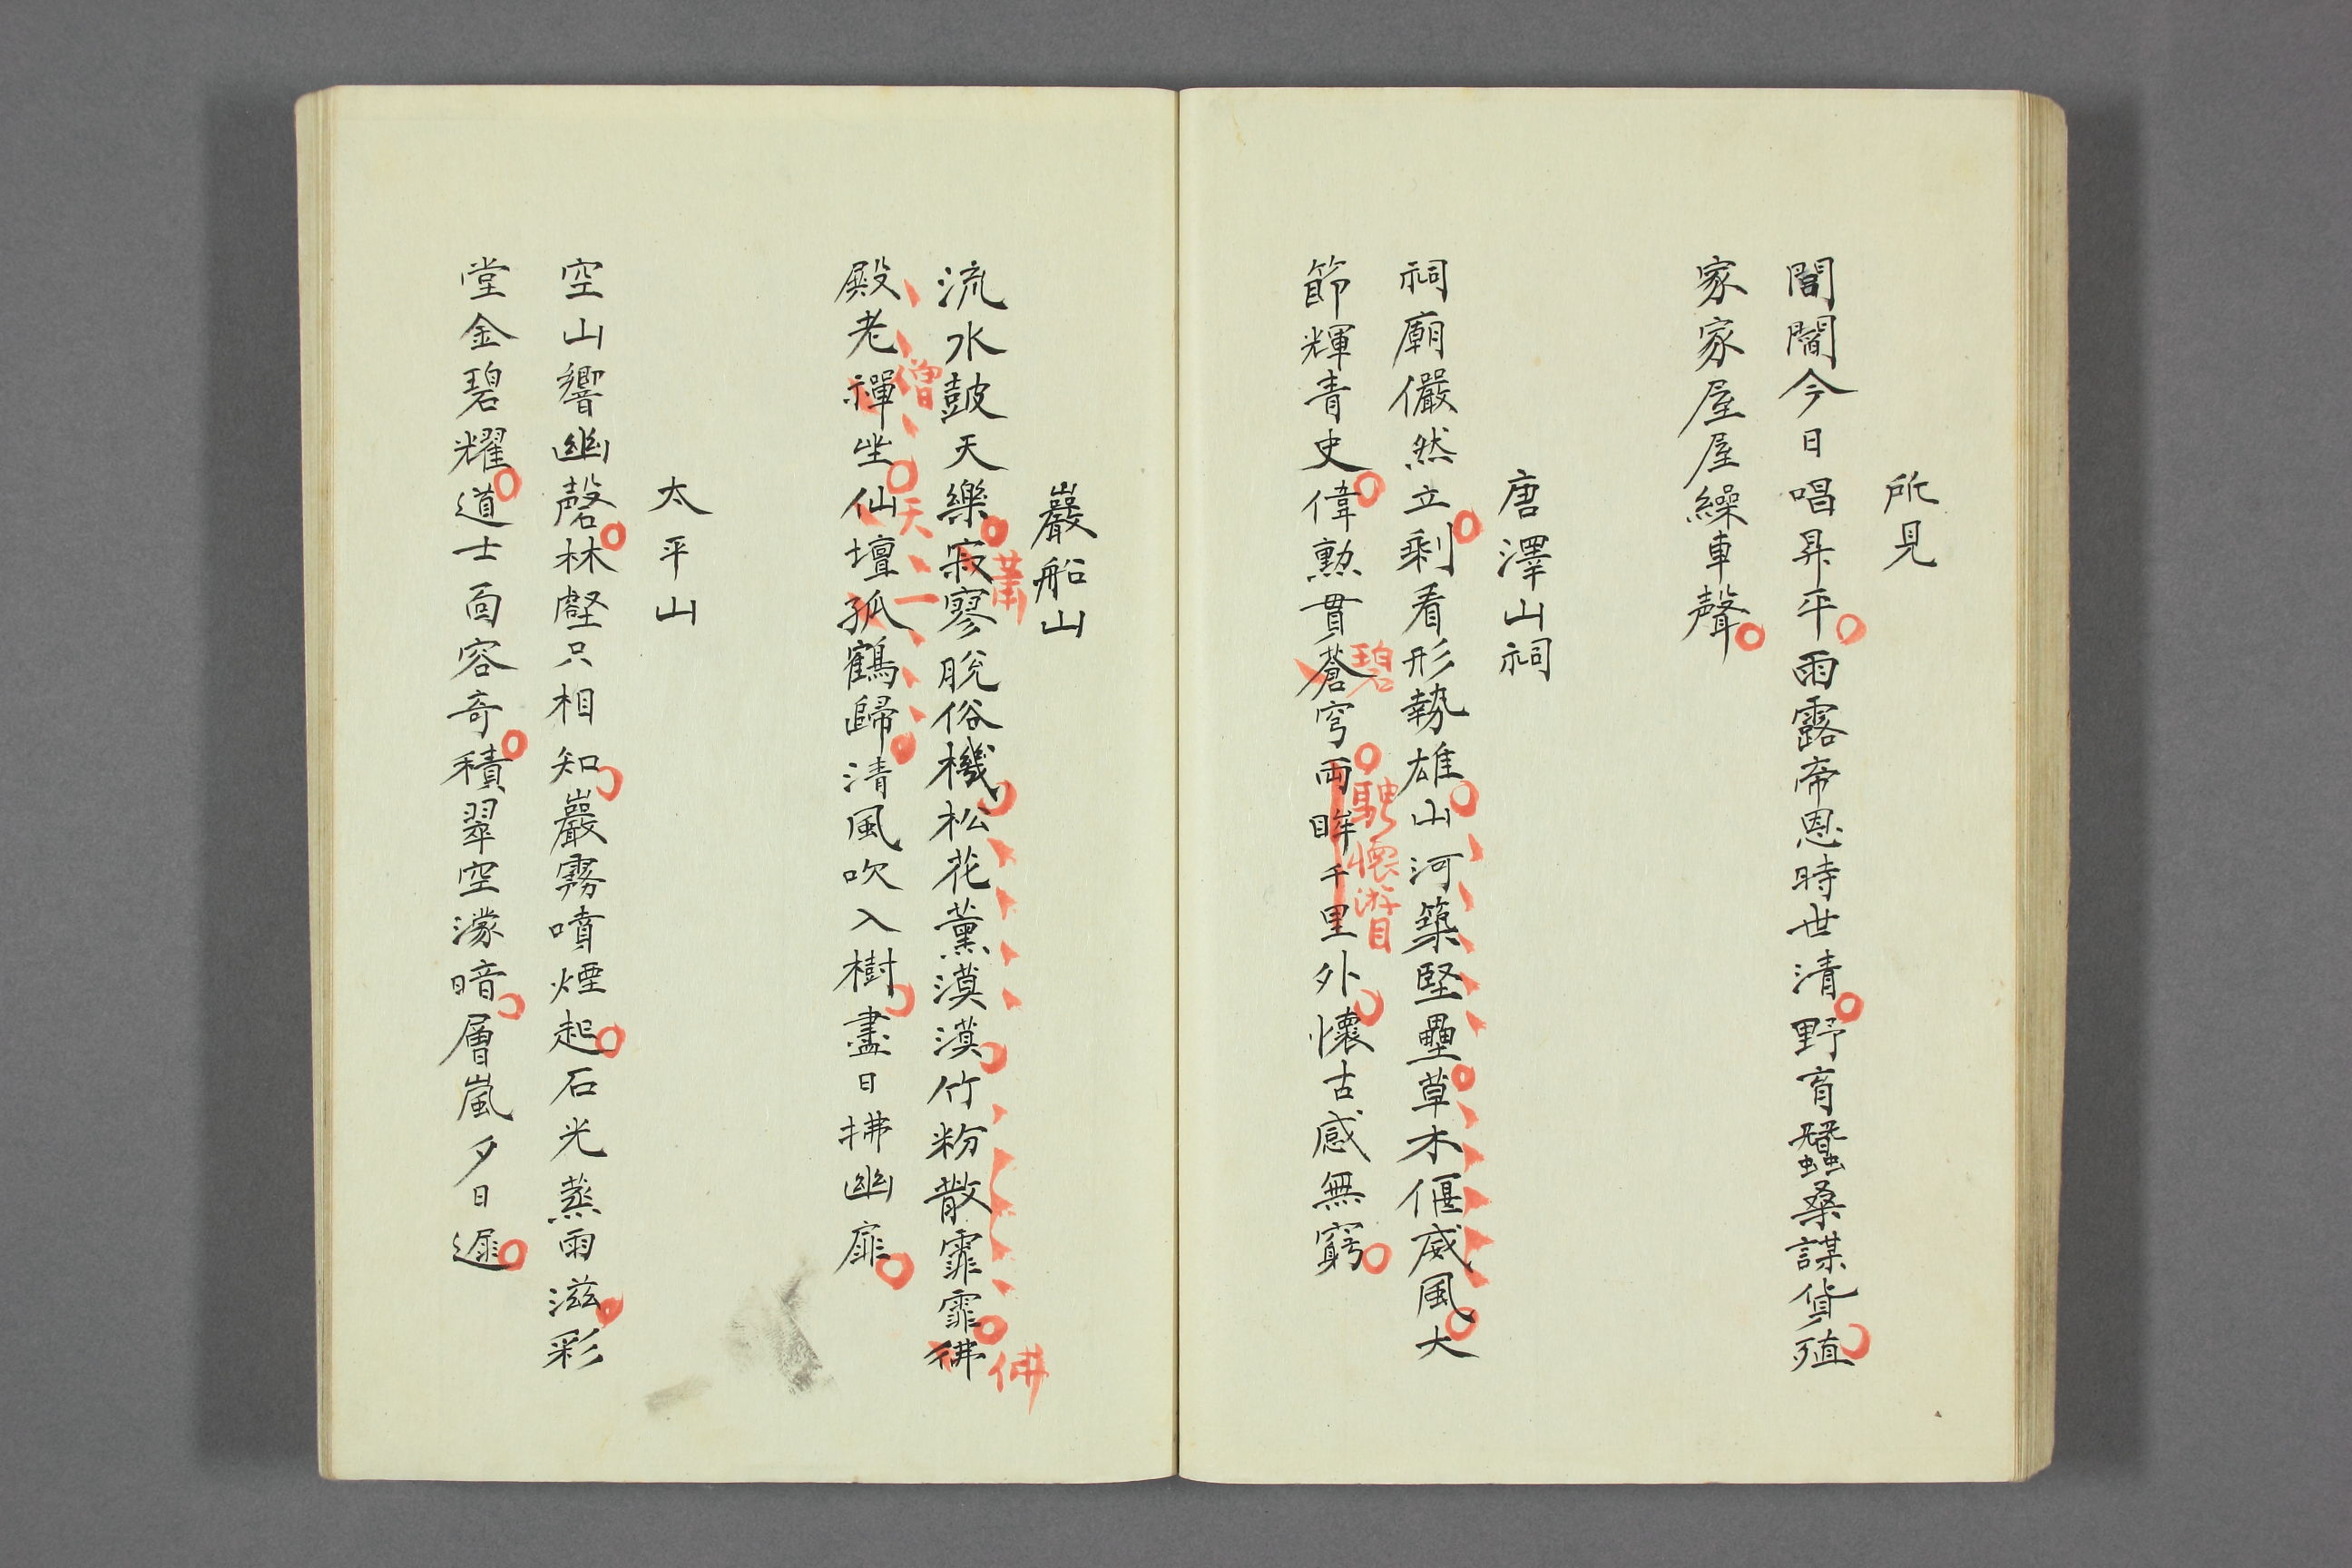 所見
閭閻今日唱昇平雨露帝恩時世清野育蠶桑謀貨殖
家家屋屋繰車聲
唐澤山祠
祠廟儼然立剩看形勢雄山河築堅壘草木偃威風大
碧
騁懷游目
節輝青史偉勲貫蒼穹両眸千里外懷古感無窮
巖船山
蕭
佛
流水鼓天樂寂寥脫俗機松花薰漠漠竹粉散霏霏彿
僧
天
一
殿老禪坐仙壇孤鶴歸清風吹入樹盡日拂幽扉
太平山
空山響幽磬林壑只相知巖霧噴煙起石光蒸雨滋彩
堂金碧耀道士面容奇積翠空濛暗層嵐夕日遲